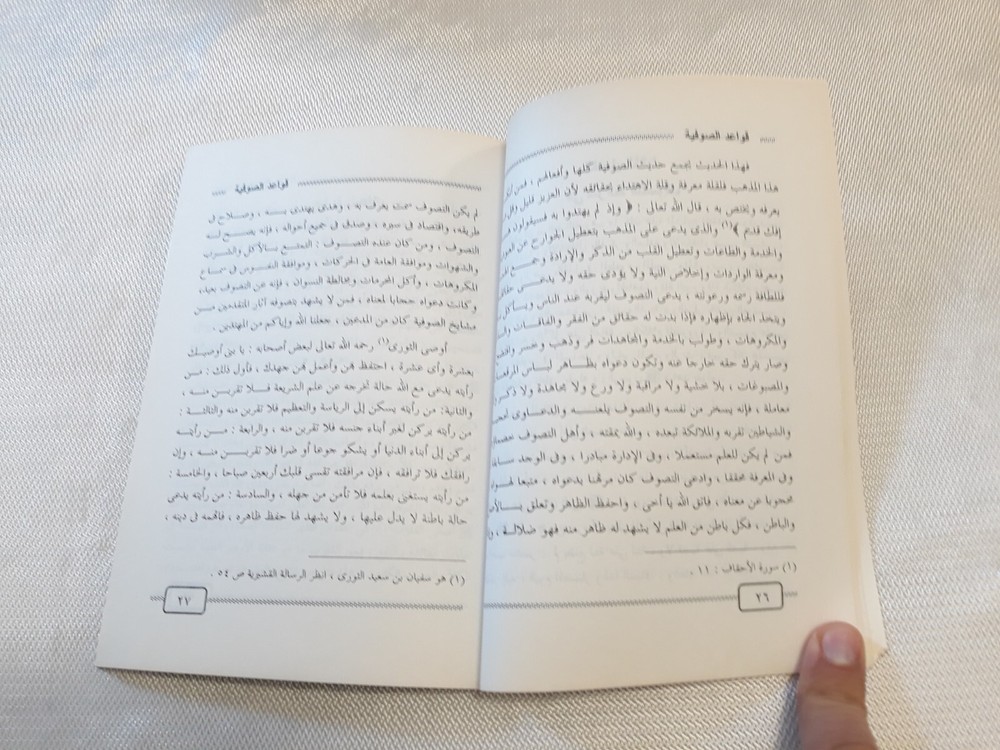 قواعد الصوفية
فهذا الحديث يجمع حديث الصوفية كلها وأفعالهم ، فمن أنكر
هذا المذهب فلقلة معرفة وقلة الاهتداء بحقائقه لأن العزيز قليل
يعرفه ويختص به ، قال الله تعالى : ﴿ وإذ لم يهتدوا به فسيقولون
إفك قديم ﴾(١) والذى يدعى على المذهب بتعطيل الجوارح عن
والخدمة والطاعات وتعطيل القلب من الذكر والإرادة وجمع
ومعرفة الواردات وإخلاص النية ولا يؤدى حقه ولا يدعى
فللطافة رسمه ورعونته ، يدعى التصوف ليقربه عند الناس ويأكل
ويتخذ الجاه بإظهاره فإذا بدت له حقائق من الفقر والفاقات
والمكروهات ، وطولب بالخدمة والمجاهدات فر وذهب وخسر
وصار بترك حقه خارجا عنه وتكون دعواه بظاهر لباس
والمصبوغات ، بلا خشية ولا مراقبة ولا ورع ولا مجاهدة ولا ذكر
معاملة ، فإنه يسخر من نفسه والتصوف يلعنه والدعاوى
والشياطين تقربه والملائكة تبعده ، والله يمقته ، وأهل التصوف
فمن لم يكن للعلم مستعملا ، وفى الإدارة مبادرا ، وفى الوجد
وفى المعرفة محققا ، وادعى التصوف كان مرتهنا بدعواه ، متبعا
محجوبا عن معناه ، فاتق الله يا أخى ، واحفظ الظاهر وتعلق
والباطن ، فكل باطن من العلم لا يشهد له ظاهر منه فهو ضلالة ،
(١) سورة الأحقاف : ١١ .
٢٦
قواعد الصوفية
لم يكن التصوف سمت يعرف به ، وهدى يهتدى به ، وصلاح فى
طريقه، واقتصاد فى سيره ، وصدق فى جميع أحواله ، فإنه يصح له
التصوف ، ومن كان عنده التصوف : التمتع بالأكل والشرب
والشهوات وموافقة العامة فى الحركات ، وموافقة النفوس فى سماع
المكروهات ، وأكل المحرمات ومخالطة النسوان ، فإنه عن التصوف بعيد،
وكانت دعواه حجابا لمعناه ، فمن لا يشهد بتصوفه آثار المتقدمين من
مشايخ الصوفية كان من المدعين ، جعلنا الله وإياكم من المهتدين .
أوصى الثورى(١) رحمه الله تعالى لبعض أصحابه : يا بنى أوصيك
بعشرة وأى عشرة ، احتفظ بهن وأعمل بهن جهدك ، فأول ذلك : من
رأيته يدعى مع الله حالة تخرجه عن علم الشريعة فلا تقربن منه ،
والثانية: من رأيته يسكن إلى الرياسة والتعظيم فلا تقربن منه والثالثة :
من رأيته يركن لغير أبناء جنسه فلا تقربن منه ، والرابعة : من رأيته
يركن إلى أبناء الدنيا أو يشكو جوعا أو ضرا فلا تقربن منه ، وإن
رافقك فلا ترافقه ، فإن مرافقته تقسى قلبك أربعين صباحا ، والخامسة :
من رأيته يستغنى بعلمه فلا تأمن من جهله ، والسادسة : من رأيته يدعى
حالة باطنة لا يدل عليها ، ولا يشهد لها حفظ ظاهره ، فاتهمه فى دينه ،
(١) هو سفيان بن سعيد الثورى ، انظر الرسالة القشيرية ص ٥٤ .
٢٧